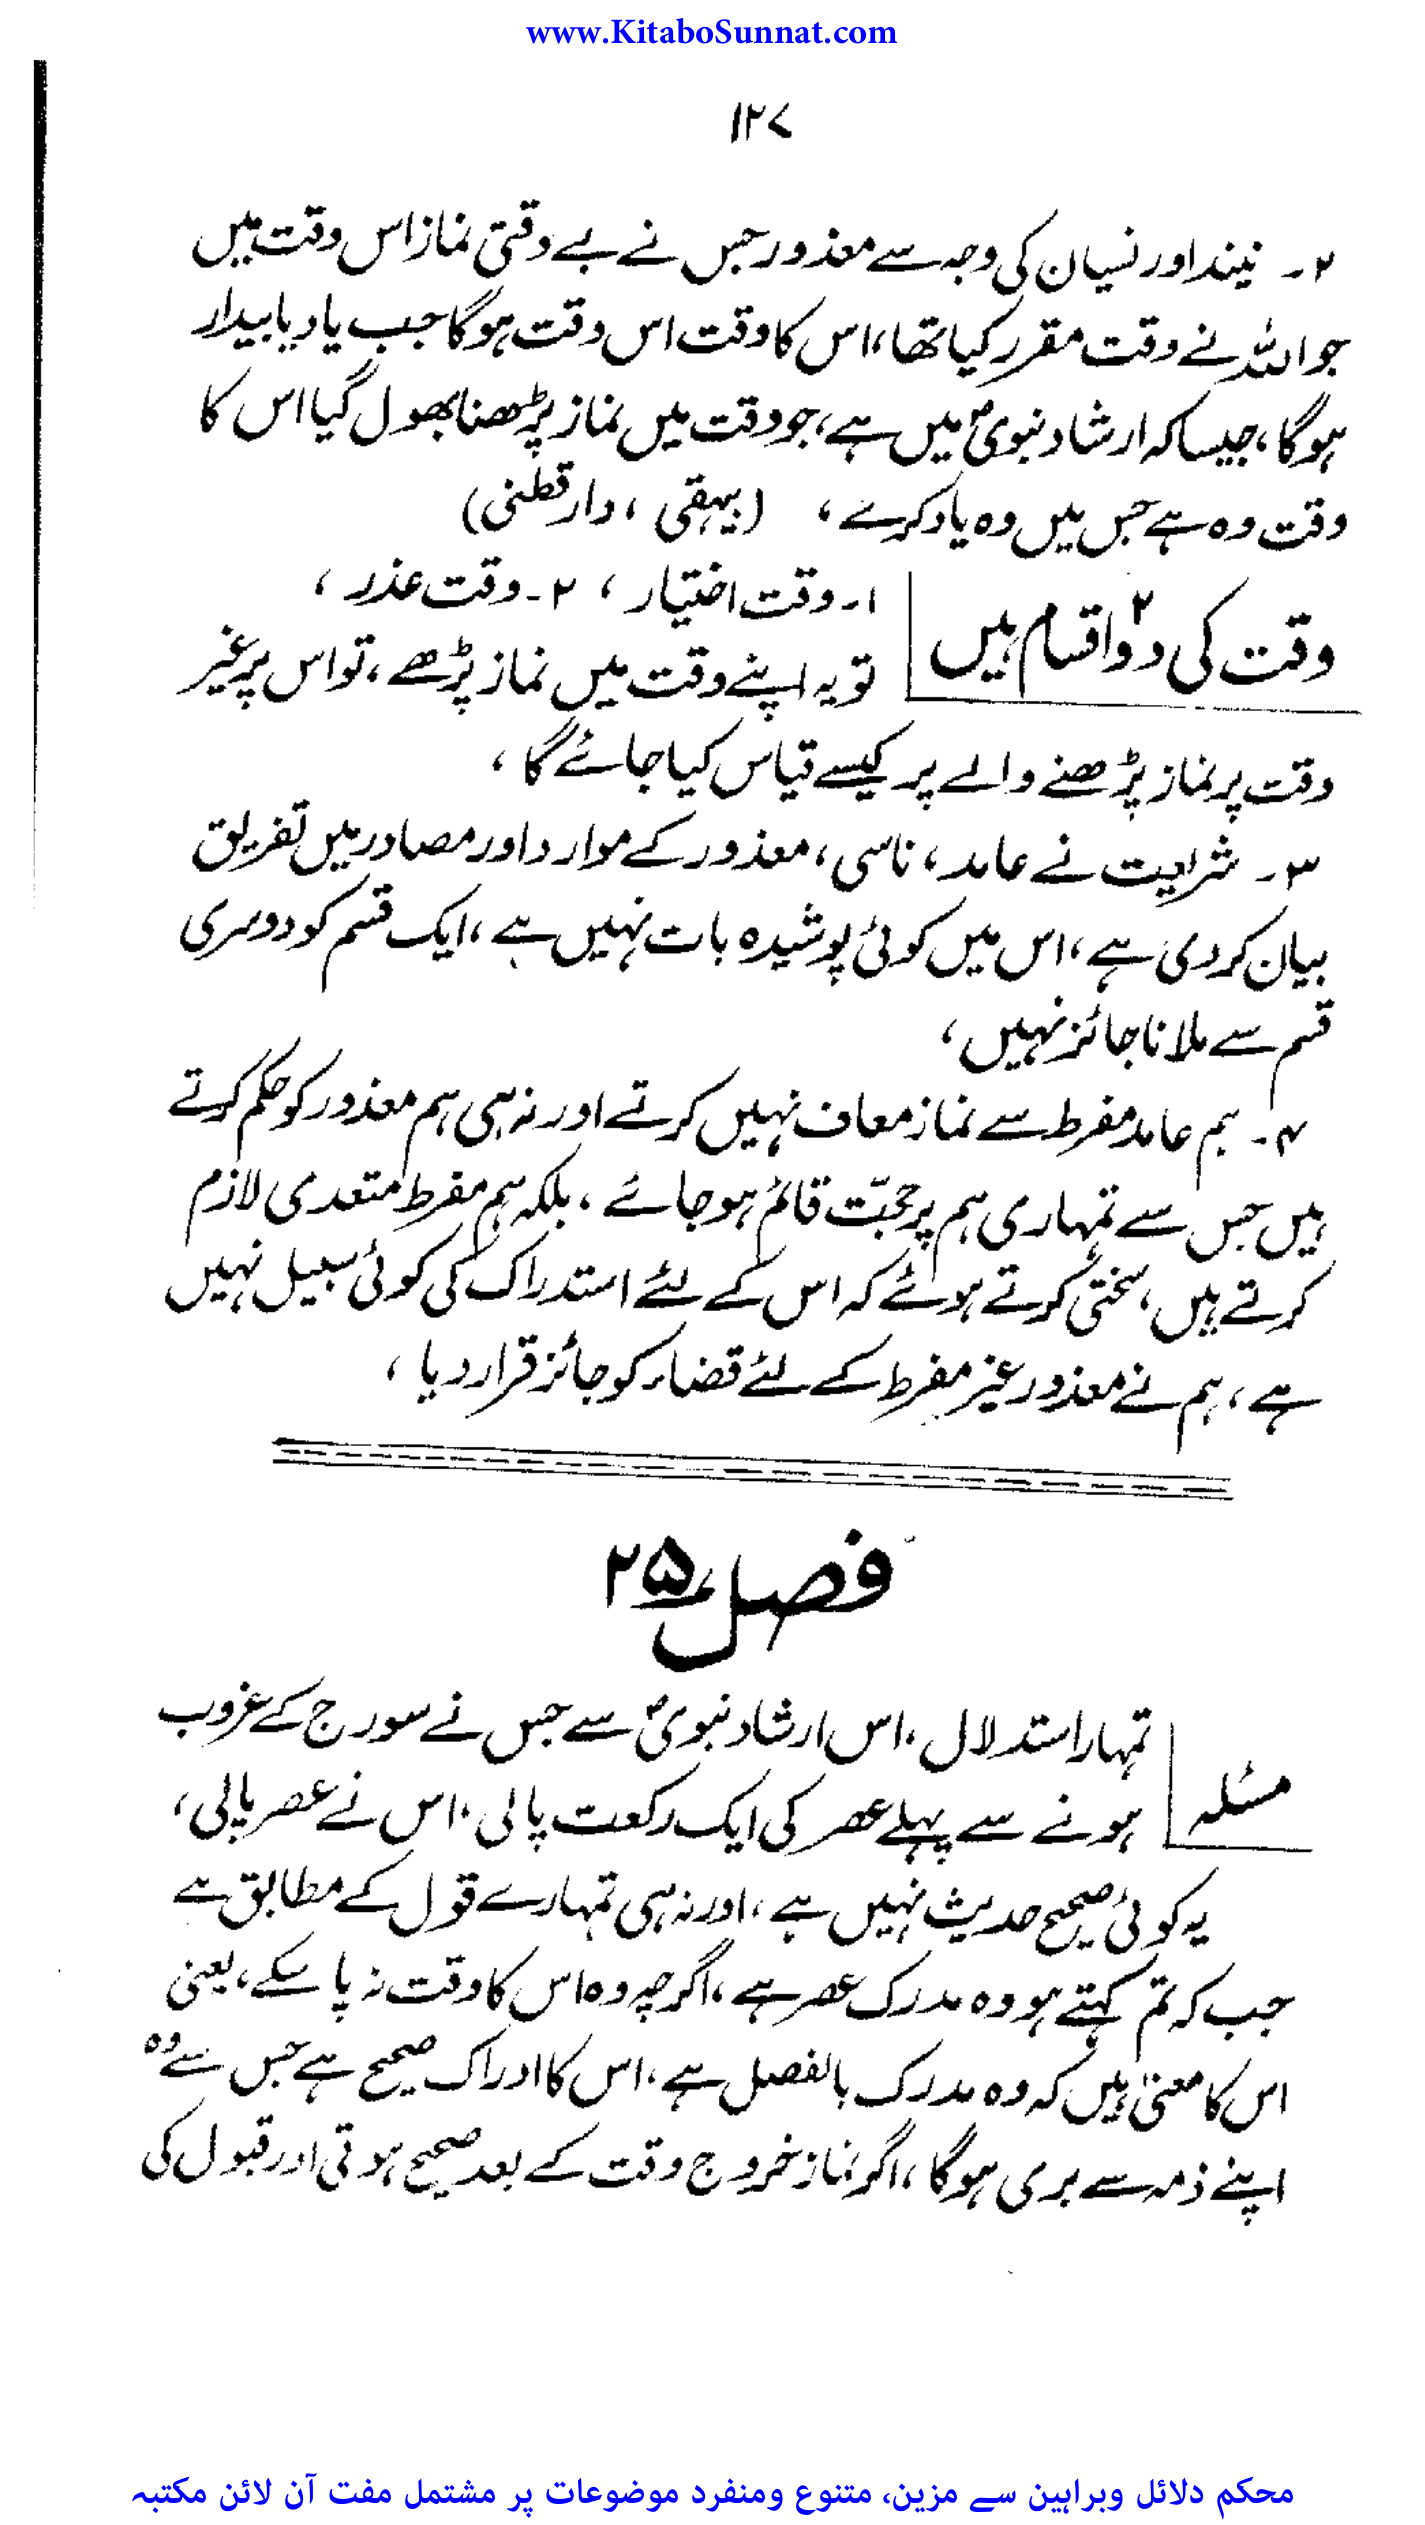 www.KitaboSunnat.com
۱۲۷
۲۔ نیند اور نسیان کی وجہ سے معذور جس نے بے وقتی نماز اس وقت میں
جو اللہ نے وقت مقرر کیا تھا، اس کا وقت اس وقت ہوگا جب یاد یا بیدار
ہوگا، جیسا کہ ارشاد نبویؐ میں ہے، جو وقت میں نماز پڑھنا بھول گیا اس کا
وقت وہ ہے جس میں وہ یاد کرے، (بیہقی، دارقطنی)
وقت کی دو۲ اقسام ہیں
۱۔ وقت اختیار، ۲۔ وقت عذر،
تو یہ اپنے وقت میں نماز پڑھے، تو اس پر غیر
وقت پر نماز پڑھنے والے پر کیسے قیاس کیا جائے گا،
۳۔ شریعت نے عامد، ناسی، معذور کے موارد اور مصادر میں تفریق
بیان کر دی ہے، اس میں کوئی پوشیدہ بات نہیں ہے، ایک قسم کو دوسری
قسم سے ملانا جائز نہیں،
۴۔ ہم عامد مفرط سے نماز معاف نہیں کرتے اور نہ ہی ہم معذور کو حکم کرتے
ہیں جس سے تمہاری ہم پر حجّت قائم ہو جائے، بلکہ ہم مفرط متعدی لازم
کرتے ہیں، سختی کرتے ہوئے کہ اس کے لئے استدراک کی کوئی سبیل نہیں
ہے، ہم نے معذور غیر مفرط کے لئے قضاء کو جائز قرار دیا،
فصل ۲۵
مسئلہ
تمہارا استدلال، اس ارشاد نبویؐ سے جس نے سورج کے غروب
ہونے سے پہلے عصر کی ایک رکعت پالی، اس نے عصر پالی،
یہ کوئی صحیح حدیث نہیں ہے، اور نہ ہی تمہارے قول کے مطابق ہے
جب کہ تم کہتے ہو وہ مدرک عصر ہے، اگرچہ وہ اس کا وقت نہ پا سکے، یعنی
اس کا معنیٰ ہیں کہ وہ مدرک بالفصل ہے، اس کا ادراک صحیح ہے جس سے وہ
اپنے ذمہ سے بری ہوگا، اگر نماز خروج وقت کے بعد صحیح ہوتی اور قبول کی
محکم دلائل وبراہین سے مزین، متنوع ومنفرد موضوعات پر مشتمل مفت آن لائن مکتبہ